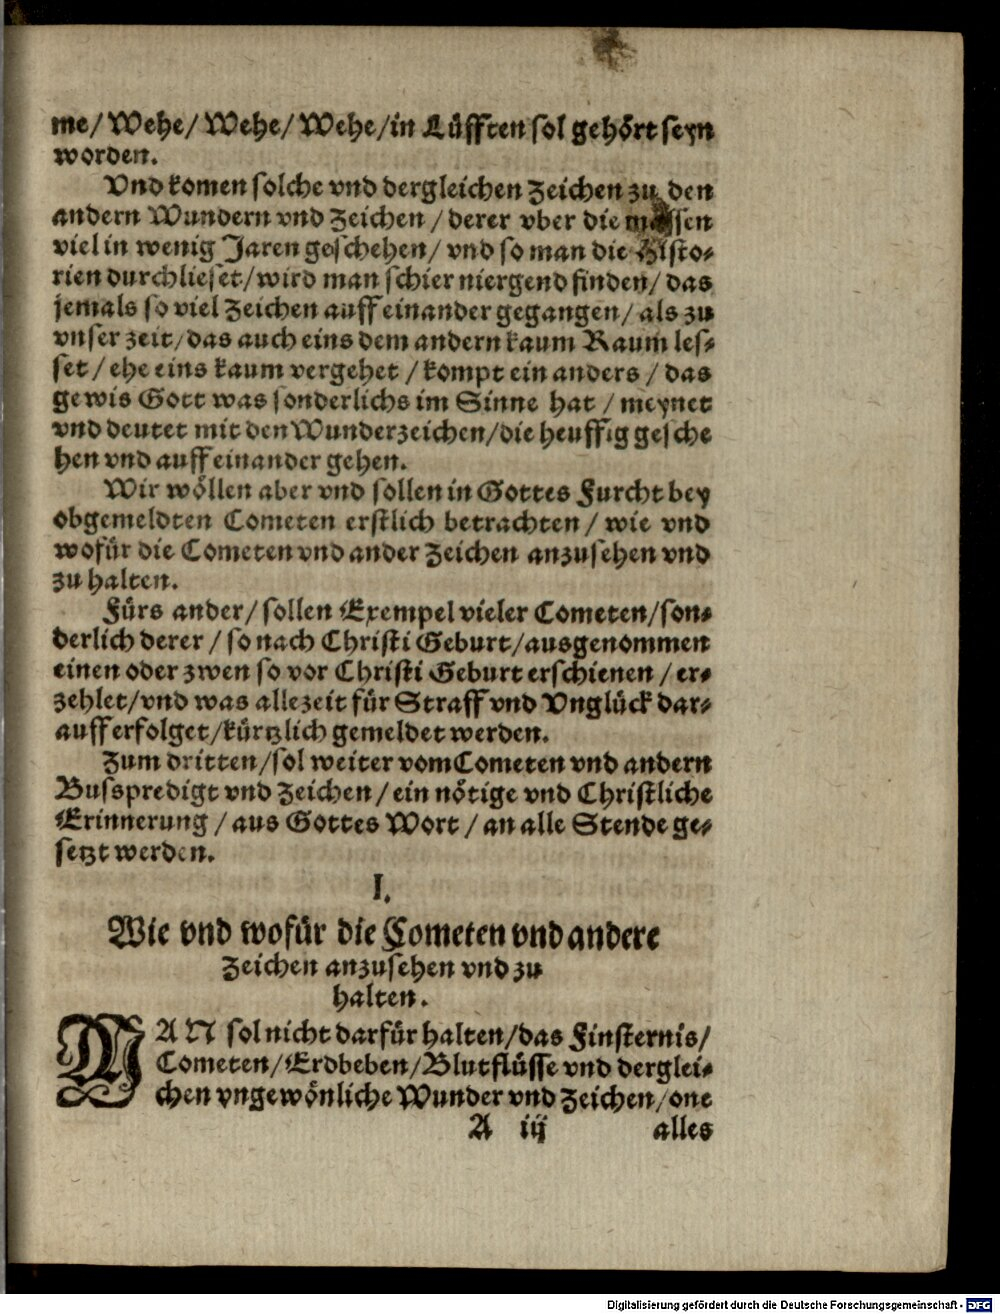 me/ Wehe/ Wehe/ Wehe/in Lüfften sol gehört seyn
worden.
Vnd komen solche vnd dergleichen Zeichen zu den
andern Wundern vnd Zeichen / derer vber die massen
viel in wenig Jaren geschehen/ vnd so man die Histo-
rien durchlieset/ wird man schier niergend finden/ das
jemals so viel Zeichen auff einander gegangen/ als zu
vnser zeit/das auch eins dem andern kaum Raum les-
set / ehe eins kaum vergehet / kompt ein anders / das
gewis Gott was sonderlichs im Sinne hat / meynet
vnd deutet mit den Wunderzeichen/die heuffig gesche
hen vnd auff einander gehen.
Wir wöllen aber vnd sollen in Gottes Furcht bey
obgemeldten Cometen erstlich betrachten / wie vnd
wofür die Cometen vnd ander Zeichen anzusehen vnd
zu halten.
Fürs ander/ sollen Exempel vieler Cometen/son-
derlich derer / so nach Christi Geburt/ausgenommen
einen oder zwen so vor Christi Geburt erschienen / er-
zehlet/vnd was allezeit für Straff vnd Vnglück dar-
auff erfolget/kürtzlich gemeldet werden.
Zum dritten/sol weiter vom Cometen vnd andern
Busspredigt vnd Zeichen / ein nötige vnd Christliche
Erinnerung / aus Gottes Wort / an alle Stende ge-
setzt werden.
I.
Wie vnd wofür die Cometen vnd andere
Zeichen anzusehen vnd zu
halten.
MAN sol nicht darfür halten/das Finsternis/
Cometen/Erdbeben/Blutflüsse vnd derglei-
chen vngewönliche Wunder vnd Zeichen/one
A iij alles
Digitalisierung gefördert durch die Deutsche Forschungsgemeinschaft - DFG